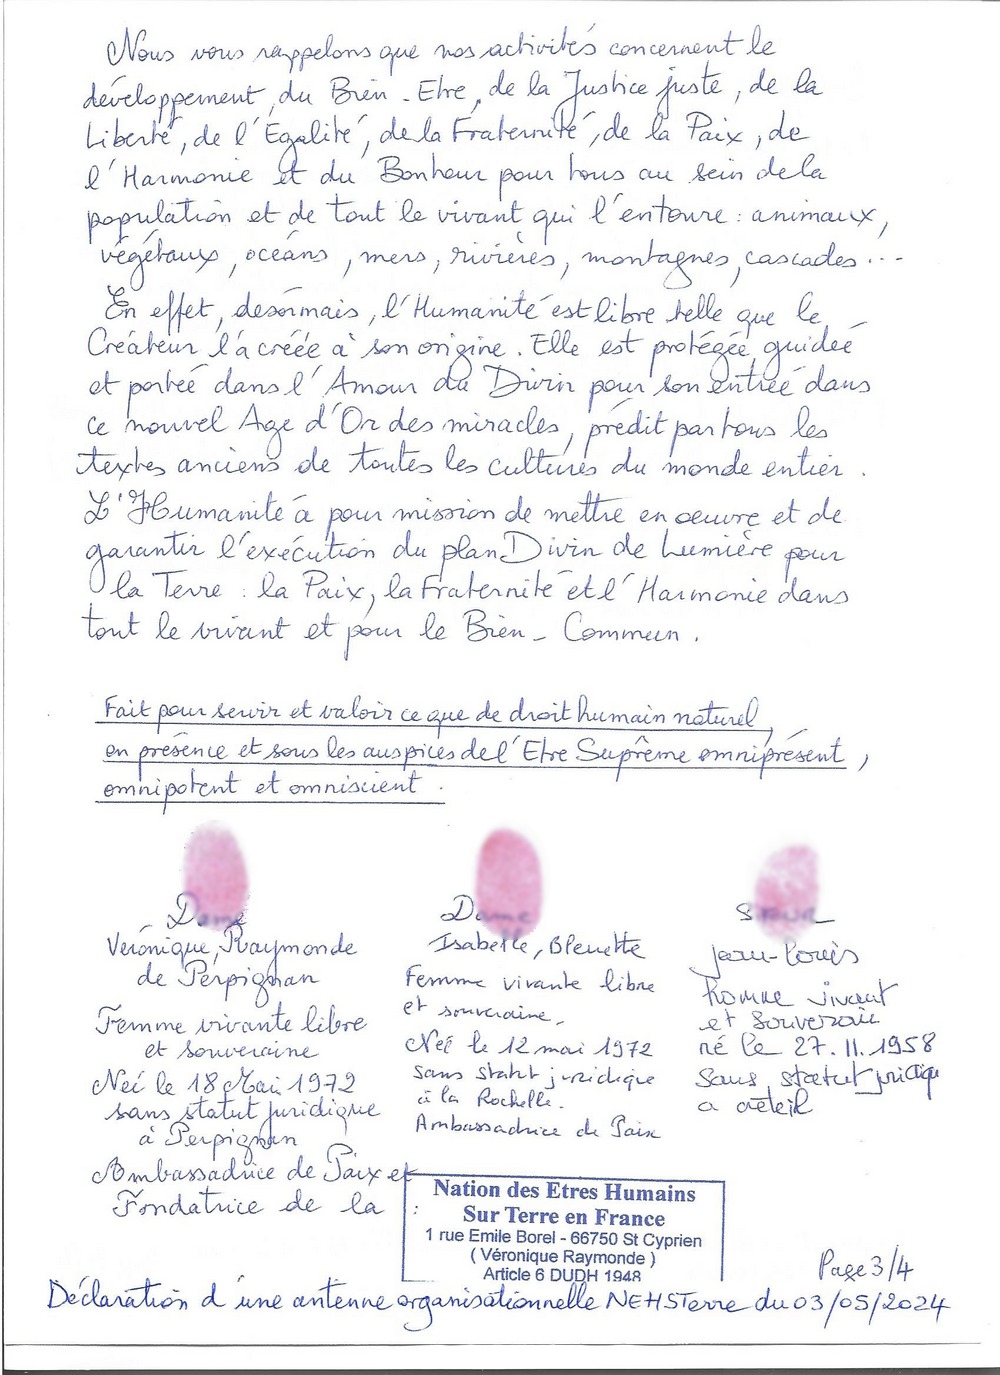 Nous vous rappelons que nos activités concernent le
développement du Bien-Etre, de la Justice juste, de la
Liberté, de l'Égalité, de la Fraternité, de la Paix, de
l'Harmonie et du Bonheur pour tous au sein de la
population et de tout le vivant qui l'entoure : animaux,
végétaux, océans, mers, rivières, montagnes, cascades...
En effet, désormais, l'Humanité est libre telle que le
Créateur l'a créée à son origine. Elle est protégée, guidée
et portée dans l'Amour du Divin pour son entrée dans
ce nouvel Age d'Or des miracles, prédit par tous les
textes anciens de toutes les cultures du monde entier.
L'Humanité a pour mission de mettre en oeuvre et de
garantir l'exécution du plan Divin de Lumière pour
la Terre : la Paix, la Fraternité et l'Harmonie dans
tout le vivant et pour le Bien-Commun.
Fait pour servir et valoir ce que de droit humain naturel,
en présence et sous les auspices de l'Etre Suprême omniprésent,
omnipotent et omniscient.
Dame
Véronique, Raymonde
de Perpignan
Femme vivante libre
et souveraine
Neé le 18 Mai 1972
sans statut juridique
à Perpignan
Ambassadrice de Paix et
Fondatrice de la :
Dame
Isabelle, Bleuette
Femme vivante libre
et souveraine,
Neé le 12 mai 1972
sans statut juridique
à la Rochelle.
Ambassadrice de Paix
Sieur
jean-Louis
homme vivant
et souverain
né le 27.11.1958
Sans statut juridique
a créteil
Nation des Etres Humains
Sur Terre en France
1 rue Emile Borel - 66750 St Cyprien
( Véronique Raymonde )
Article 6 DUDH 1948
Page 3/4
Déclaration d'une antenne organisationnelle NEHSTerre du 03/05/2024